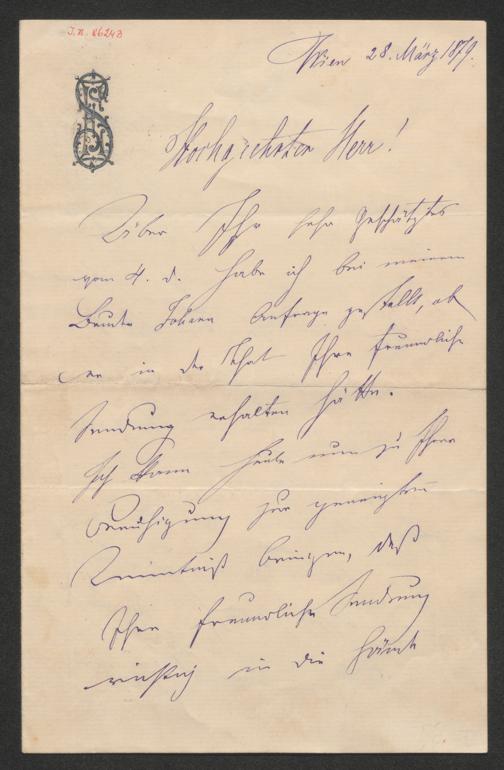 I.N. 86248
Wien 28. März 1879.
Hochgeehrter Herr!
Über Ihr sehr geschätztes
vom 4. d. habe ich bei meinem
Bruder Johann Anfrage gestellt, ob
er in der That Ihre freundliche
Sendung erhalten hätte.
Ich kann heute nun zu Ihrer
Beruhigung zur geneigten
Kenntniß bringen, daß
Ihre freundliche Sendung
richtig in die Hände